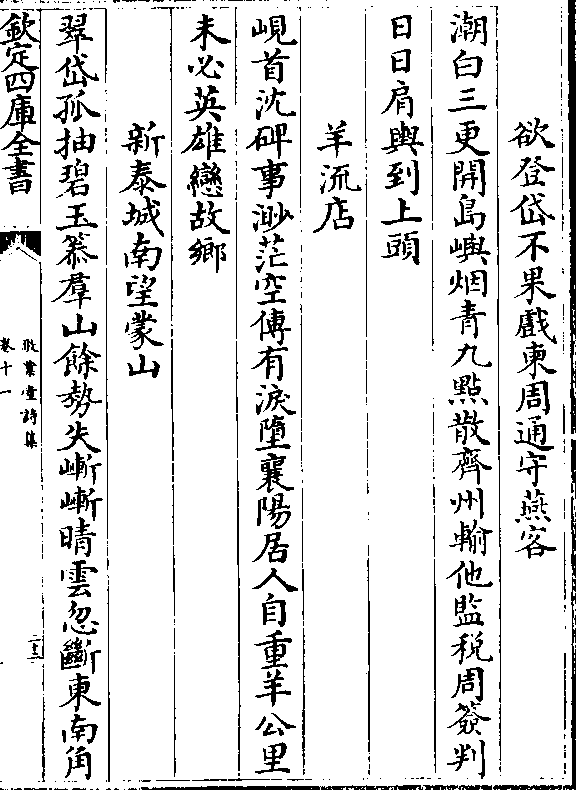 欲登岱不果戲柬周通守燕客
潮白三更開島嶼烟青九點散齊州輸他監稅周簽判
日日肩輿到上頭
羊流店
峴首沈碑事渺茫空傳有淚墮襄陽居人自重羊公里
未必英雄戀故鄉
新泰城南望蒙山
翠岱孤抽碧玉篸羣山餘勢失嶄嶄晴雲忽斷東南角
欽定四庫全書
敬業堂詩集
卷十一